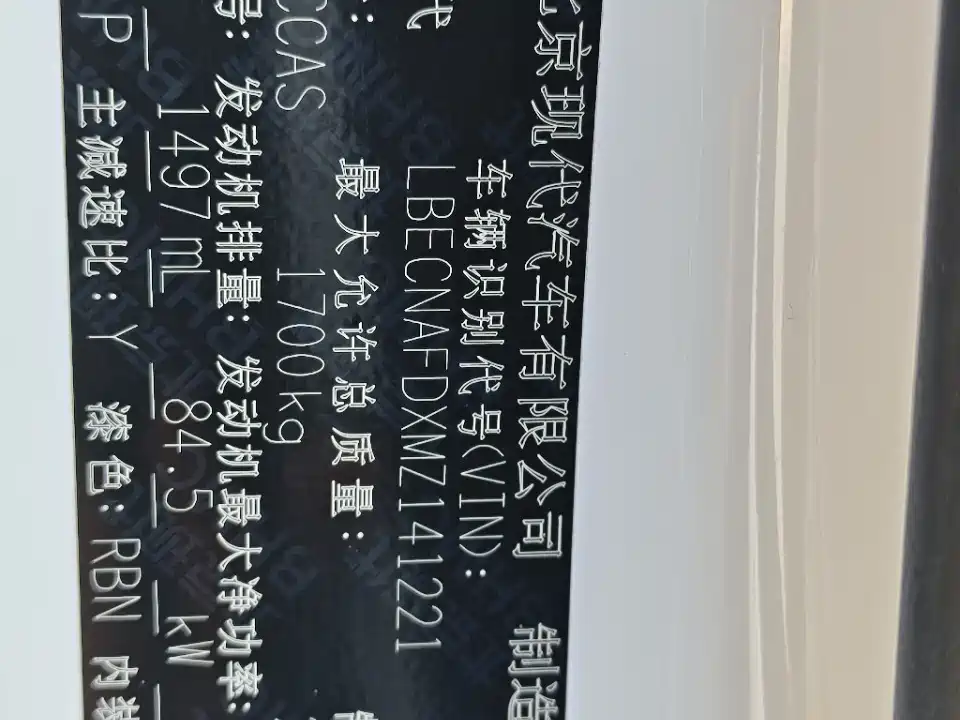 北京现代汽车有限公司 制造
车辆识别代号(VIN):
LBECNAFDXMZ141221
代 最大允许总质量:
CCAS 1700kg
号: 发动机排量: 发动机最大净功率:
1497mL 84.5 kW
P 主减速比: Y 漆色: RBN 内